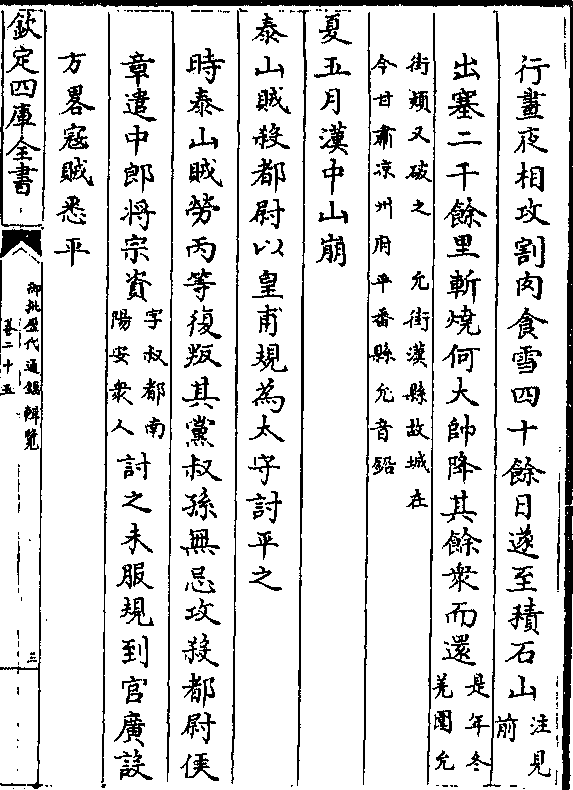 行晝夜相攻割肉食雪四十餘日遂至積石山注見前
出塞二千餘里斬燒何大帥降其餘衆而還是年冬羌圍允
街熲又破之　允街漢縣故城在
今甘肅凉州府平番縣允音鉛
夏五月漢中山崩
泰山賊殺都尉以皇甫規為太守討平之
時泰山賊勞丙等復叛其黨叔孫無忌攻殺都尉侯
章遣中郎將宗資字叔都南陽安衆人討之未服規到官廣設
方畧寇賊悉平
欽定四庫全書
御批歷代通鑑輯覽
卷二十五
三